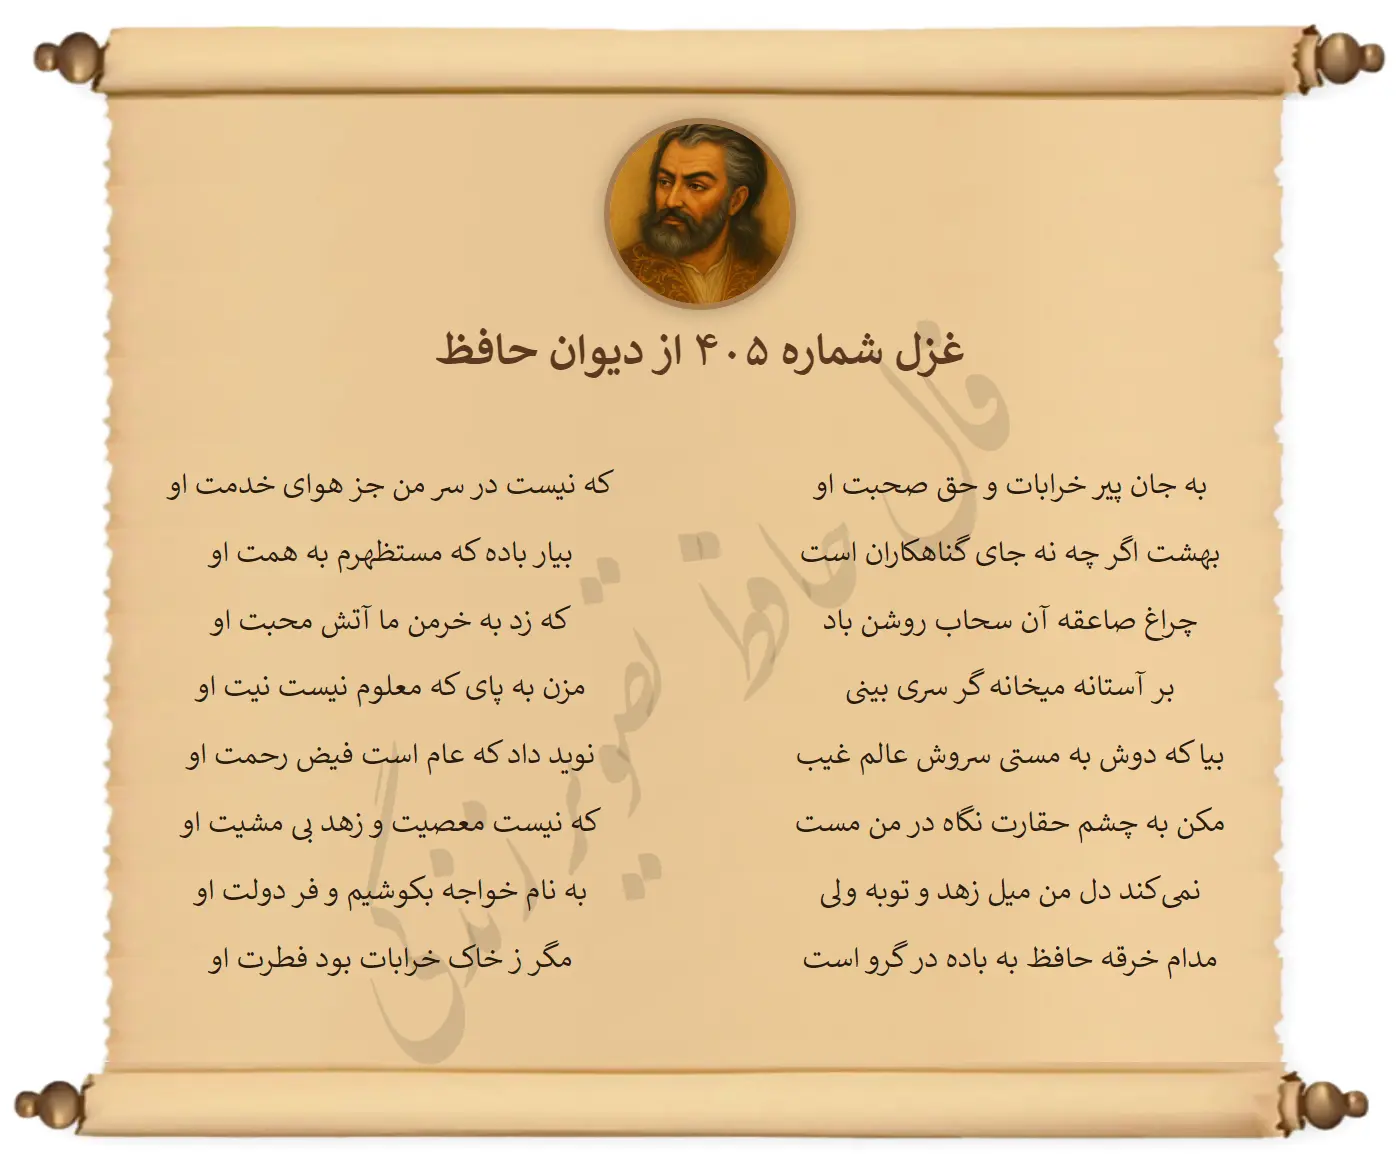 غزل شماره ۴۰۵ از دیوان حافظ
به جان پیر خرابات و حق صحبت او
که نیست در سر من جز هوای خدمت او
بهشت اگر چه نه جای گناهکاران است
بیار باده که مستظهرم به همت او
چراغ صاعقه آن سحاب روشن باد
که زد به خرمن ما آتش محبت او
بر آستانه میخانه گر سری بینی
مزن به پای که معلوم نیست نیت او
بیا که دوش به مستی سروش عالم غیب
نوید داد که عام است فیض رحمت او
مکن به چشم حقارت نگاه در من مست
که نیست معصیت و زهد بی مشیت او
نمی‌کند دل من میل زهد و توبه ولی
به نام خواجه بکوشیم و فر دولت او
مدام خرقه حافظ به باده در گرو است
مگر ز خاک خرابات بود فطرت او
فال حافظ تصویر زندگی